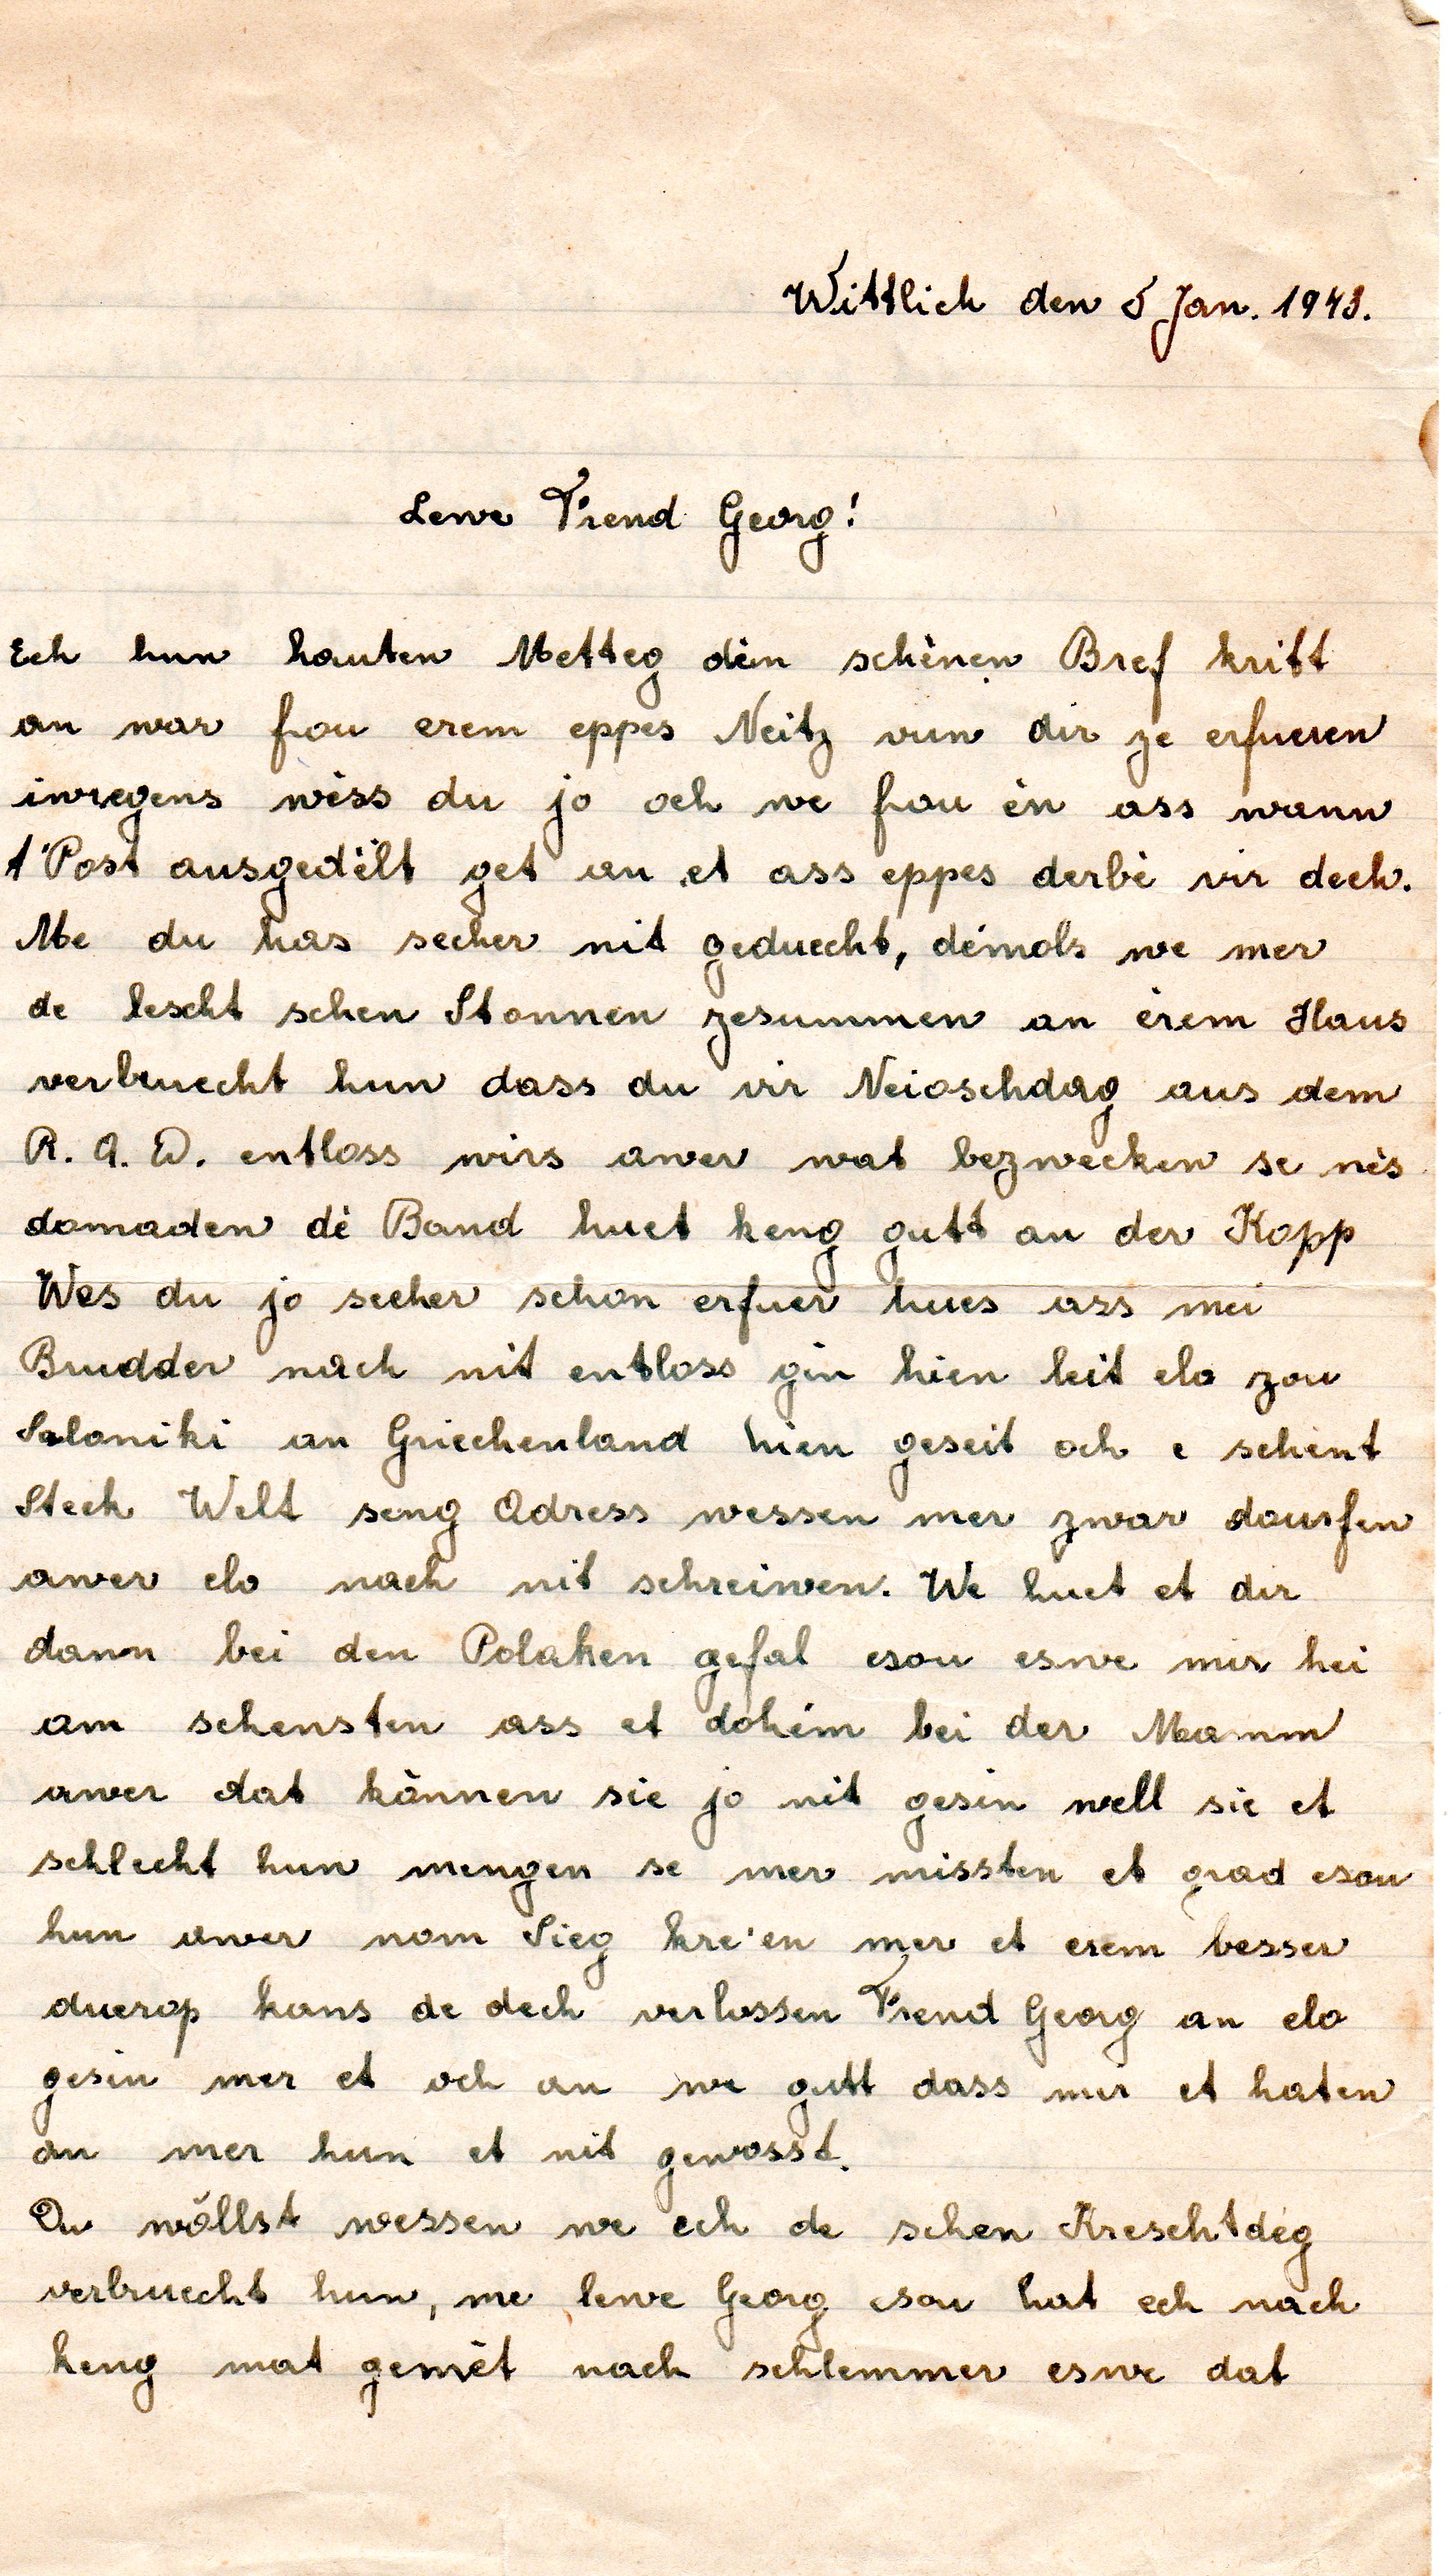 Wittlich den 5 Jan. 1943.
Lewe Frend Georg!
Ech hun hauten Metteg dèin schènen Bref kritt
an war frou erem eppes Neitz vun dir ze erfueren
iwregens wèss du jo och we frou èn ass wann
t'Post ausgedèlt get an et ass eppes derbè vir dech.
Me du has secher nit geduecht, dèmols we mer
de lescht schen Stonnen zesummen an èrem Haus
verbruecht hun dass du vir Neioschdag aus dem
R. A. D. entloss wirs awer wat bezwecken se nès
domaden dè Band huet keng gutt an der Kopp
Wes du jo secher schon erfuer hues ass mei
Brudder nach nit entloss gin hien leit elo zou
Saloniki an Griechenland hien geseit och e schènt
Steck Welt seng Adress wessen mer zwar dourfen
awer elo nach nit schreiwen. We huet et dir
dann bei den Polaken gefal esou eswe mir hei
am schensten ass et dohèm bei der Mamm
awer dat kànnen sie jo nit gesin well sie et
schlecht hun mengen se mer missten et grad esou
hun awer nom Sieg kre'en mer et erem besser
duerop kans de dech verlossen Frend Georg an elo
gesin mer et och an we gutt dass mir et haten
an mer hun et nit gewosst.
Du wöllst wessen we ech de schen Kreschtdèg
verbruecht hun, me lewe Georg esou hat ech nach
keng mat gemèt nach schlemmer eswe dat